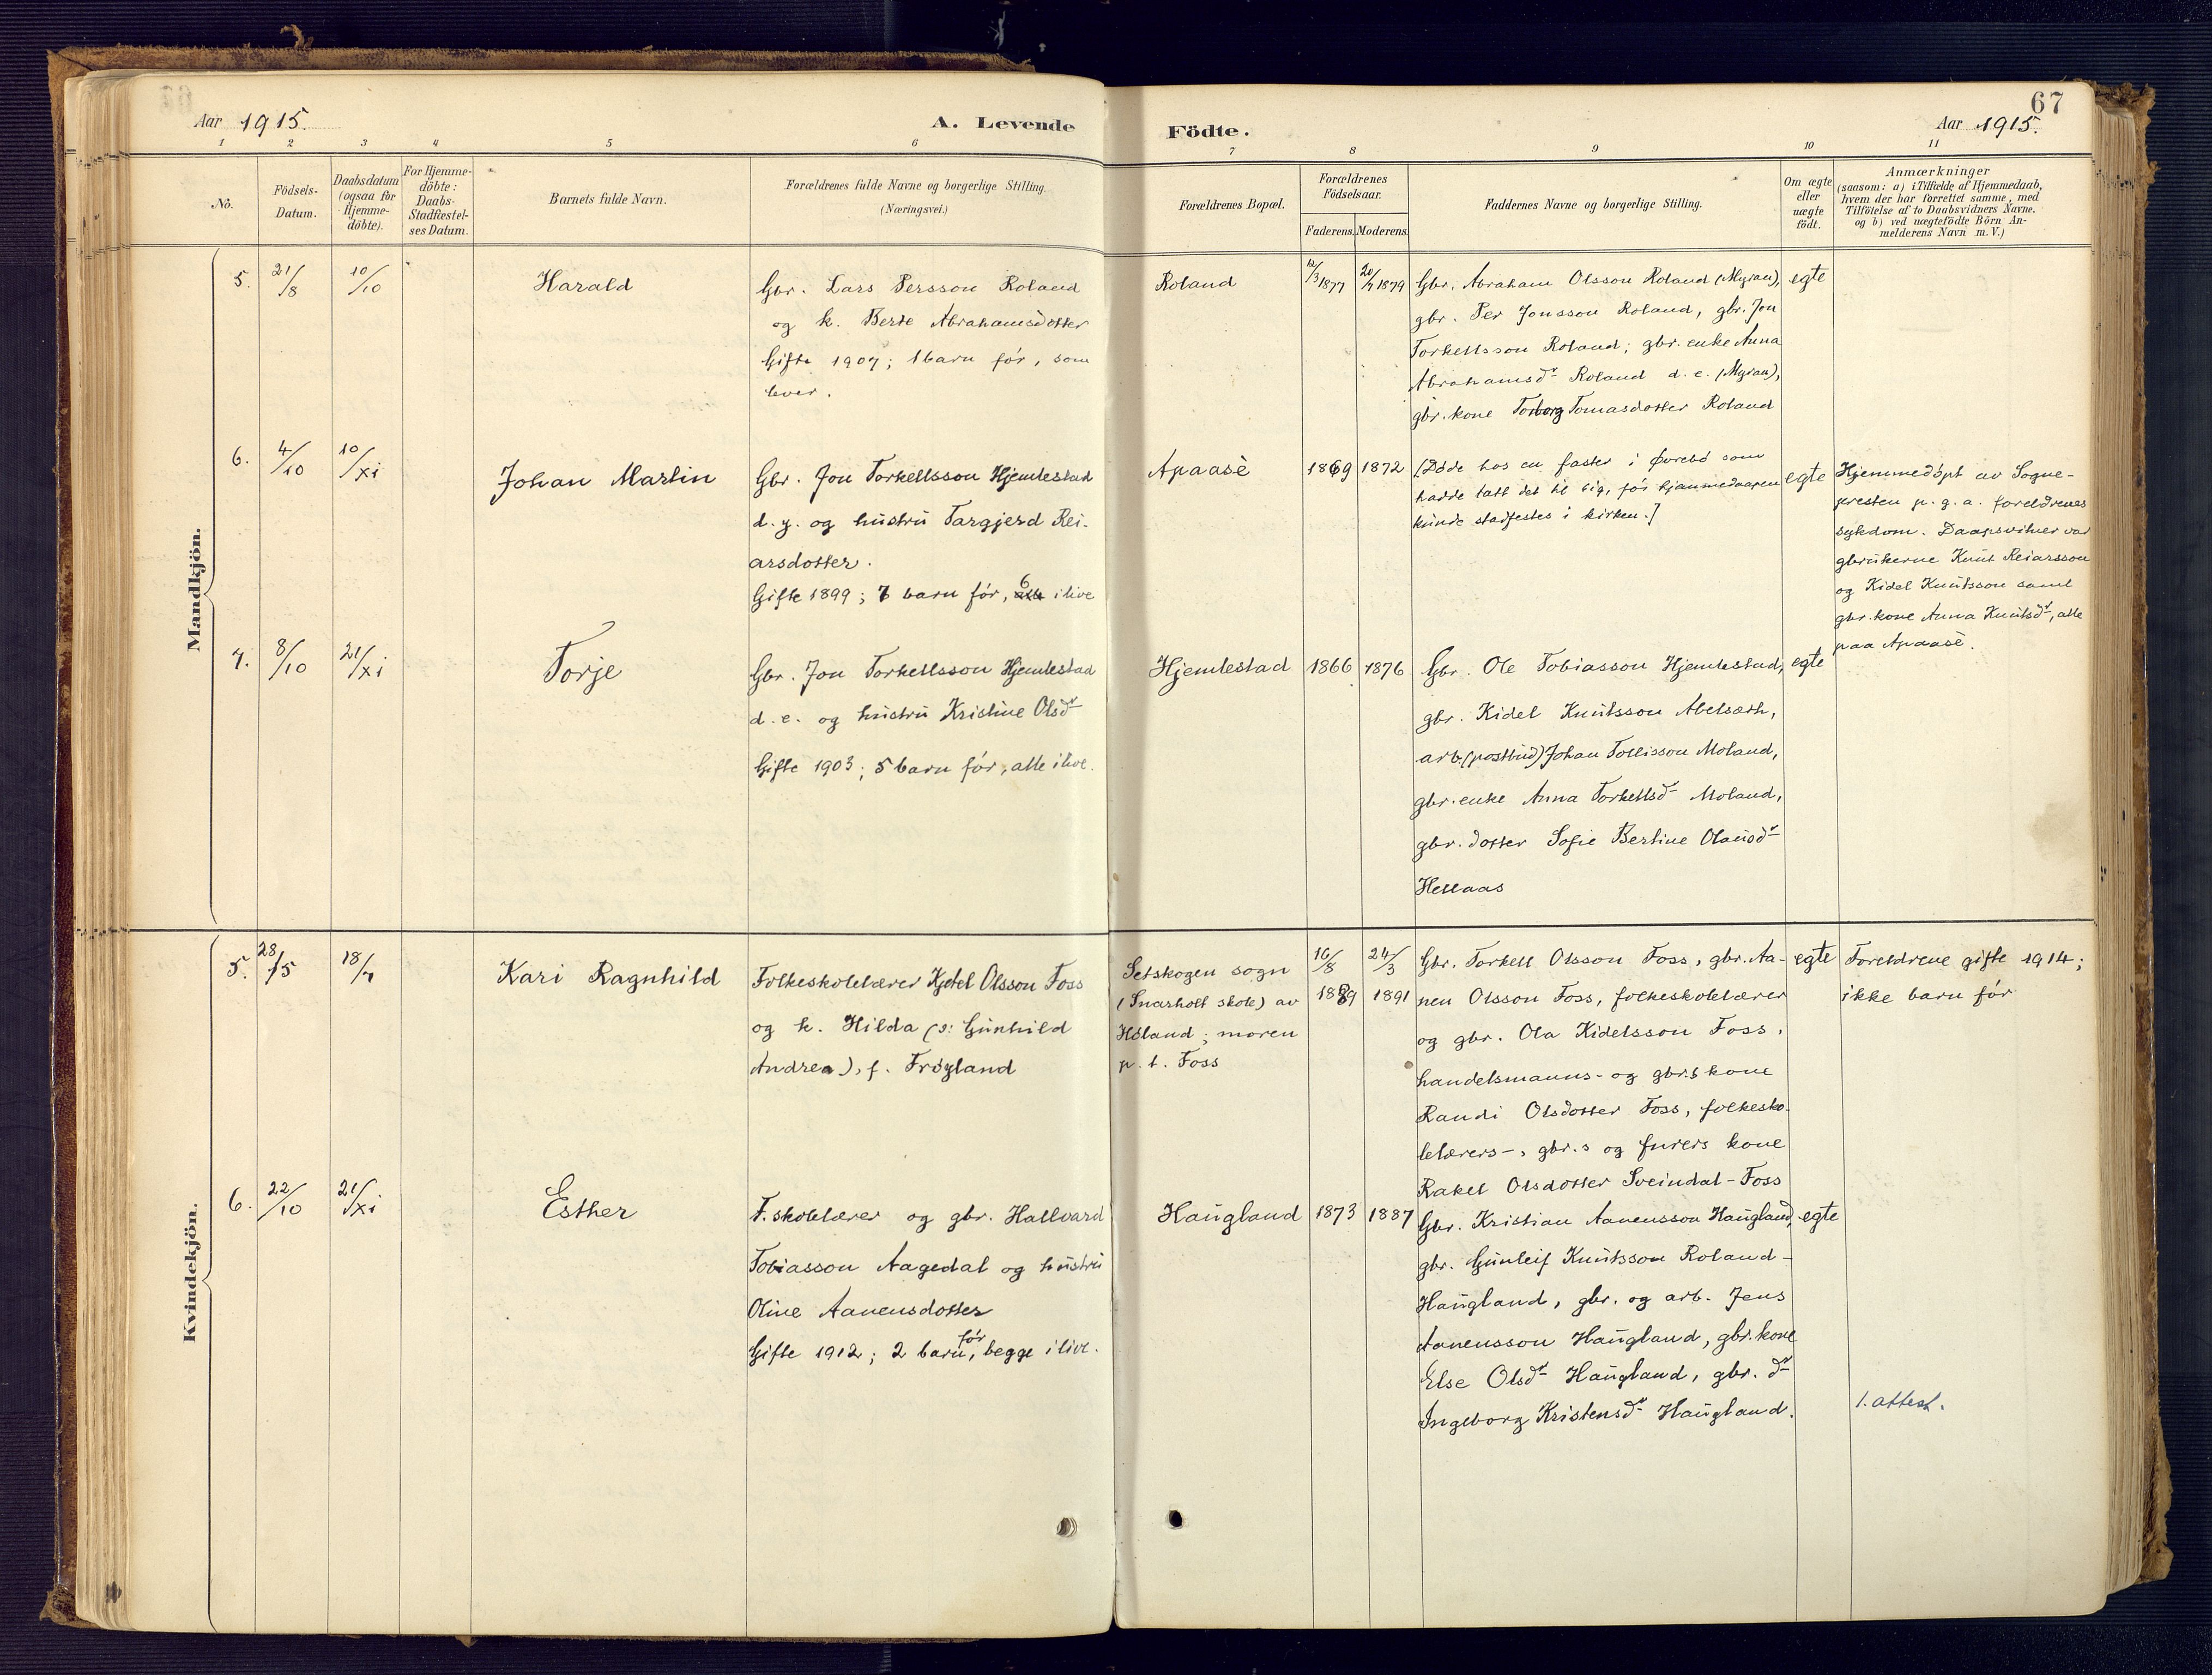 67
Aar 1915.
A. Levende
Födte.
Aar 1915.
1 2 3 4 5 6 7 8 9 10 11
No.
Födsels-
Datum.
Daabsdatum
(ogsaa for
Hjemme-
döbte).
For Hjemme-
döbte:
Daabs-
Stadfæstel-
ses Datum.
Barnets fulde Navn.
Forældrenes fulde Navne og borgerlige Stilling.
(Næringsvei.)
Forældrenes Bopæl.
Forældrenes
Födselsaar.
Faderens. Moderens.
Faddernes Navne og borgerlige Stilling.
Om ægte
eller
uægte
födt.
Anmærkninger
(saasom: a) i Tilfælde af Hjemmedaab,
hvem der har forrettet samme, med
Tilföielse af to Daabsvidners Navne.
og b) ved uægtefödte Börn An-
melderens Navn m. V.)
Mandkjön.
5. 21/8 10/10
Harald
Gbr. Lars Persson Roland
og k. Berte Abrahamsdotter
Gifte 1907; 1 barn før, som
lever.
Roland
12/3 1877 20/7 1879
Gbr. Abraham Olsson Roland (Myran),
gbr. Per Jonsson Roland, gbr. Jon
Torkellsson Roland; gbr. enke Anna
Abrahamsdr Roland d. e. (Myran),
gbr. kone Torborg Tomasdotter Roland
egte
6. 4/10 10/xi
Johan Martin
Gbr. Jon Torkellsson Hjemlestad
d. y. og hustru Targjerd Rei-
arsdotter.
Gifte 1899; 7 barn før, 6 ilive
Apaasè
1869 1872
[Døde hos en faster i Øvrebø som
hadde tatt det til sig, før hjemmedaapen
kunde stadfestes i kirken.]
egte
Hjemmedøpt av Sogne-
presten p. g. a. foreldrenes
sykdom. Daapsvitner var
gbrukerne Knut Reiarsson
og Kidel Knutsson samt
gbr. kone Anna Knutsdr, alle
paa Apaasè.
7. 8/10 21/xi
Torje
Gbr. Jon Torkellsson Hjemlestad
d. e. og hustru Kristine Olsdr
Gifte 1903; 5 barn før, alle ilive.
Hjemlestad
1866 1876
Gbr. Ole Tobiasson Hjemlestad,
gbr. Kidel Knutsson Abelsæth,
arb. (postbud) Johan Tollisson Moland,
gbr. enke Anna Torkellsdr Moland,
gbr. dotter Sofie Bertine Olausdr
Hellaas
egte
Kvindekjön.
5. 28/5 18/7
Kari Ragnhild
Folkeskolelærer Kjetel Olsson Foss
og k. Hilda (ɔ: Gunhild
Andrea), f. Frøyland
Setskogen sogn
(Snarholt skole) av
Høland; moren
p. t. Foss
16/8 1889 24/3 1891
Gbr. Torkell Olsson Foss, gbr. Aa-
nen Olsson Foss, folkeskolelærer
og gbr. Ola Kidelsson Foss,
handelsmanns- og gbr.s kone
Randi Olsdotter Foss, folkesko-
lelærers-, gbr.s og furers kone
Rakel Olsdotter Sveindal-Foss
egte
Foreldrene gifte 1914;
ikke barn før
6. 22/10 21/xi
Esther
F. skolelærer og gbr. Hallvard
Tobiasson Aagedal og hustru
Oline Aanensdotter
Gifte 1912; 2 barn før, begge ilive.
Haugland
1873 1887
Gbr. Kristian Aanensson Haugland,
gbr. Gunleif Knutsson Roland-
Haugland, gbr. og arb. Jens
Aanensson Haugland, gbr. kone
Else Olsdr Haugland, gbr. dr
Ingeborg Kristensdr Haugland.
egte
1. attest.